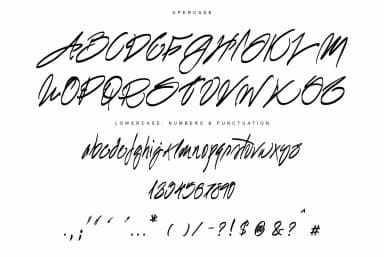 UPERCASE
ABCDEFGHIJKLM
NOPQRSTUVWXYZ
LOWERCASE, NUMBERS & PUNCTUATION
abcdefghijklmnopqrstuvwxyz
1234567890
.,; '' '' ...* ()/-?!$@&?^#